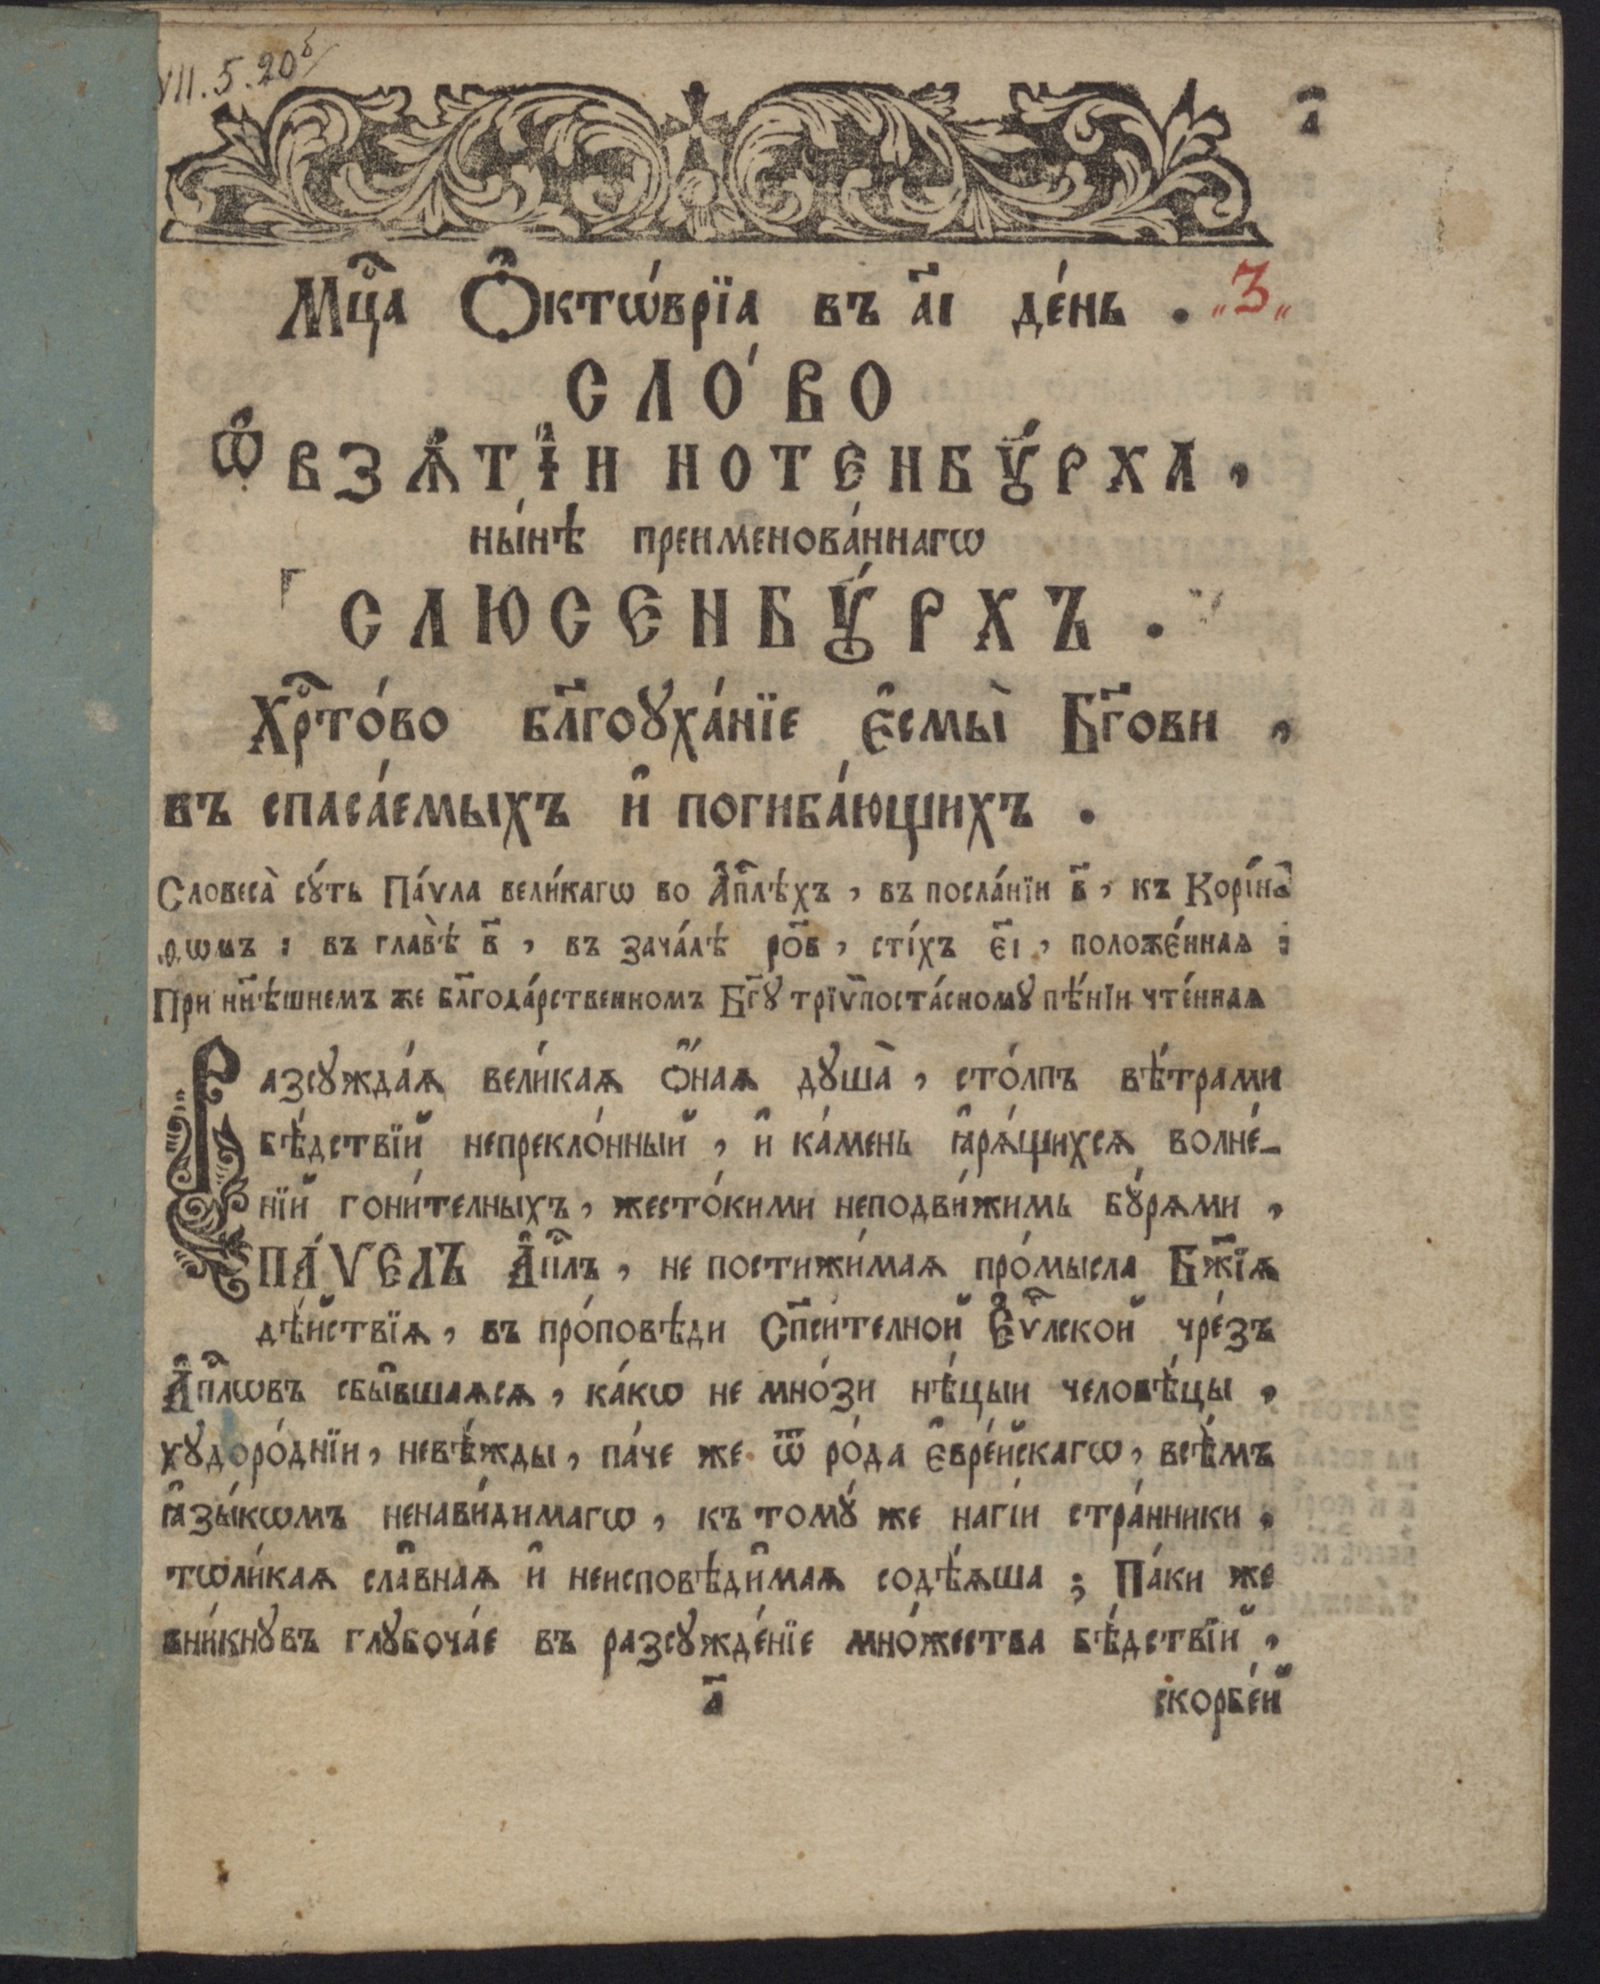 VII.5.20б
а҃
Мц҇а Ѻ҆ктѡ́врїа въ а҃і де́нь . „3„
СЛО́ВО
Ѡ҆ ВЗѦ́ТЇИ НОТЕНБꙊ́РХА ,
ны́нѣ преименова́ннагѡ
СЛЮСЕНБꙊ́РХЪ .
Хрⷭ҇то́во бл҃гоуха́нїе є҆смы̀ Бг҃ови ,
въ спаса́емыхъ и҆ погиба́ющихъ .
Словеса̀ сꙋ́ть Па́ѵла вели́кагѡ во А҆пⷭ҇лѣхъ , въ посла́нїи в҃ , къ Корі́нѳ-
ѳѡмъ : въ главѣ̀ в҃ , въ зача́лѣ ро҃в , сті́хъ є҃і , положе́нная :
При нн҃ѣшнемъ же бл҃года́рственномъ Бг҃ꙋ трїѵпоста́сномꙋ пѣ́нїи чте́нная
Разсꙋжда́ѧ вели́каѧ ѻ҆́наѧ дꙋша̀ , сто́лпъ вѣ́трами
бѣ́дствїй непрекло́нный , и҆ ка́мень ꙗ҆рѧ́щихсѧ волне́-
нїй гони́телныхъ , жесто́кими неподви́жимь бꙋ́рѧми ,
ПА́ѴЕЛЪ А҆пⷭ҇лъ , не постижи́маѧ про́мысла Бж҃їѧ
дѣ́йствїѧ , въ про́повѣди Сп҃си́телной Є҆ѵⷢ҇лской чре́зъ
А҆пⷭ҇лѡвъ сбы́вшаѧсѧ , ка́кѡ не мно́зи нѣ́цыи человѣ́цы ,
хꙋдоро́днїи , невѣ́жды , па́че же ѿ ро́да є҆вре́йскагѡ , всѣ́мъ
ꙗ҆зы́кѡмъ ненави́димагѡ , къ томꙋ́ же нагі́и стра́нники ,
тѡли́каѧ сла́внаѧ и҆ неисповѣди́маѧ содѣ́ѧша ; Па́ки же
вни́кнꙋвъ глꙋбоча́е въ разсꙋжде́нїе мно́жества бѣ́дствїй ,
а҃ скорбе́й